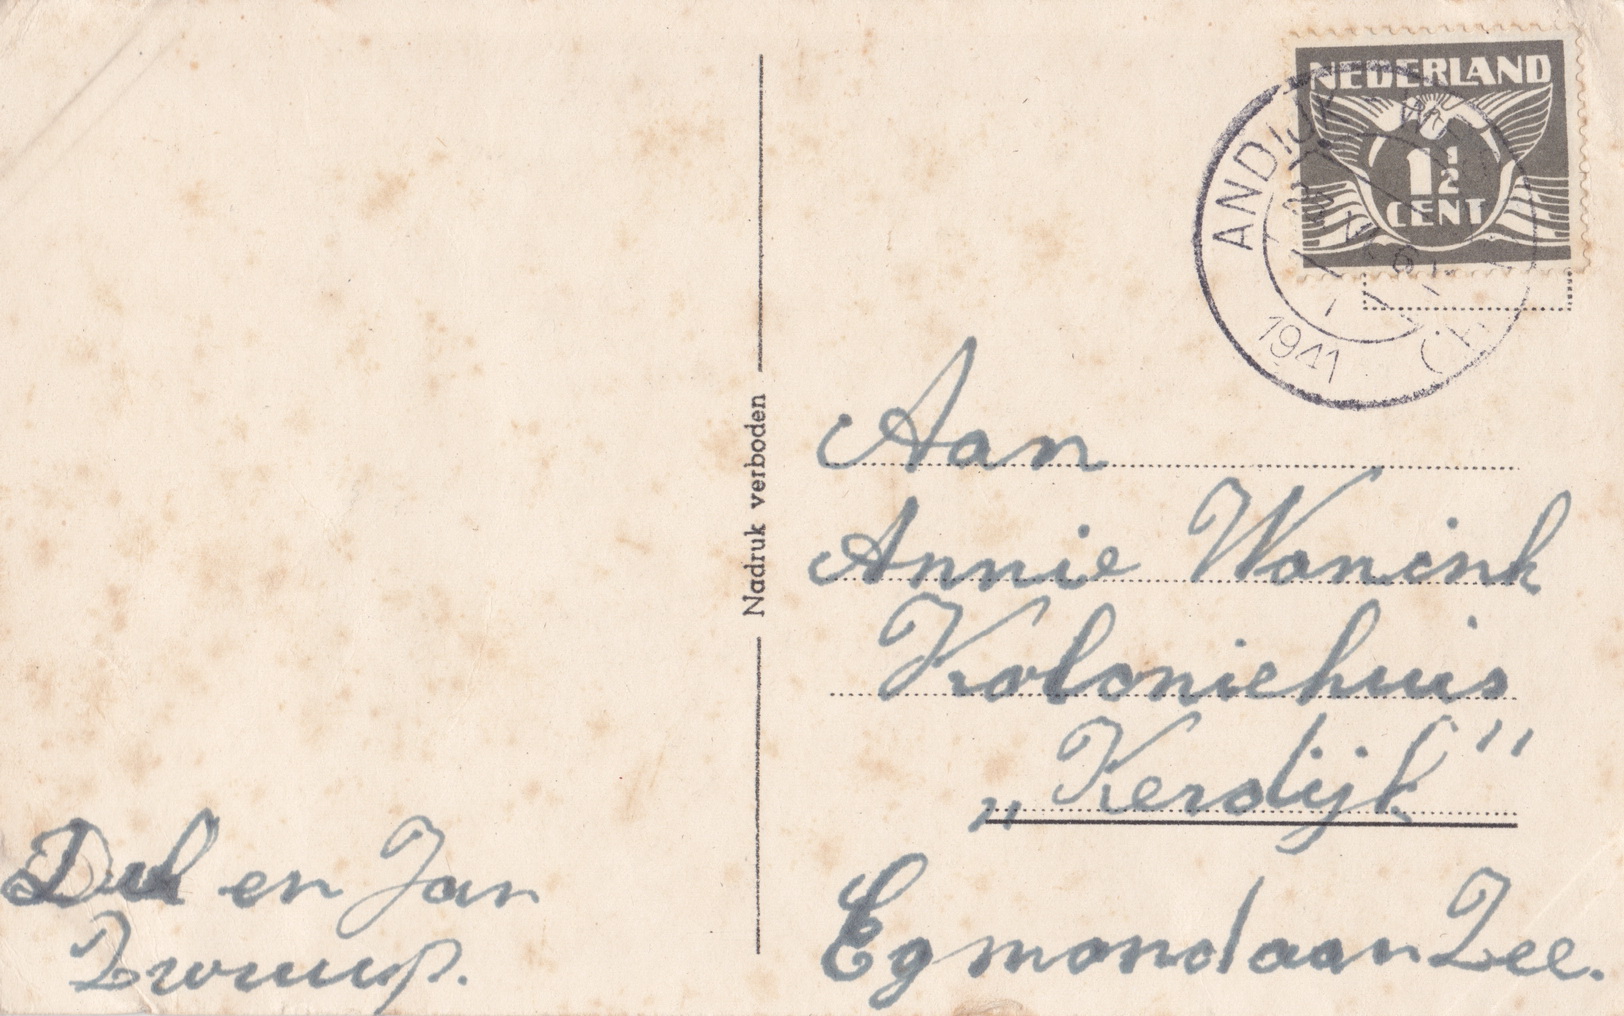 NEDERLAND
1½
CENT
ANDIJK
1941
Nadruk verboden
Aan
Annie Wonink
Koloniehuis
„Kerdijk"
Egmond aan Zee.
en Jan